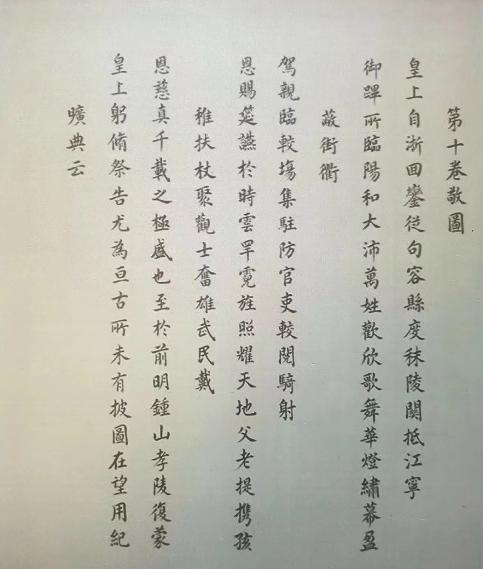 第十卷敬圖
皇上自浙回鑾從句容縣度秣陵関抵江寧
御蹕所臨陽和大沛萬姓歡欣歌舞華燈繡幕盈
蔽街衢
駕親臨較塲集駐防官吏較閲騎射
恩賜筵讌於時雲罕霓旌照耀天地父老提攜孩
稚扶杖聚觀士奮雄武民戴
恩慈真千載之極盛也至於前明鍾山孝陵復蒙
皇上躬脩祭告尤為亘古所未有披圖在望用紀
曠典云